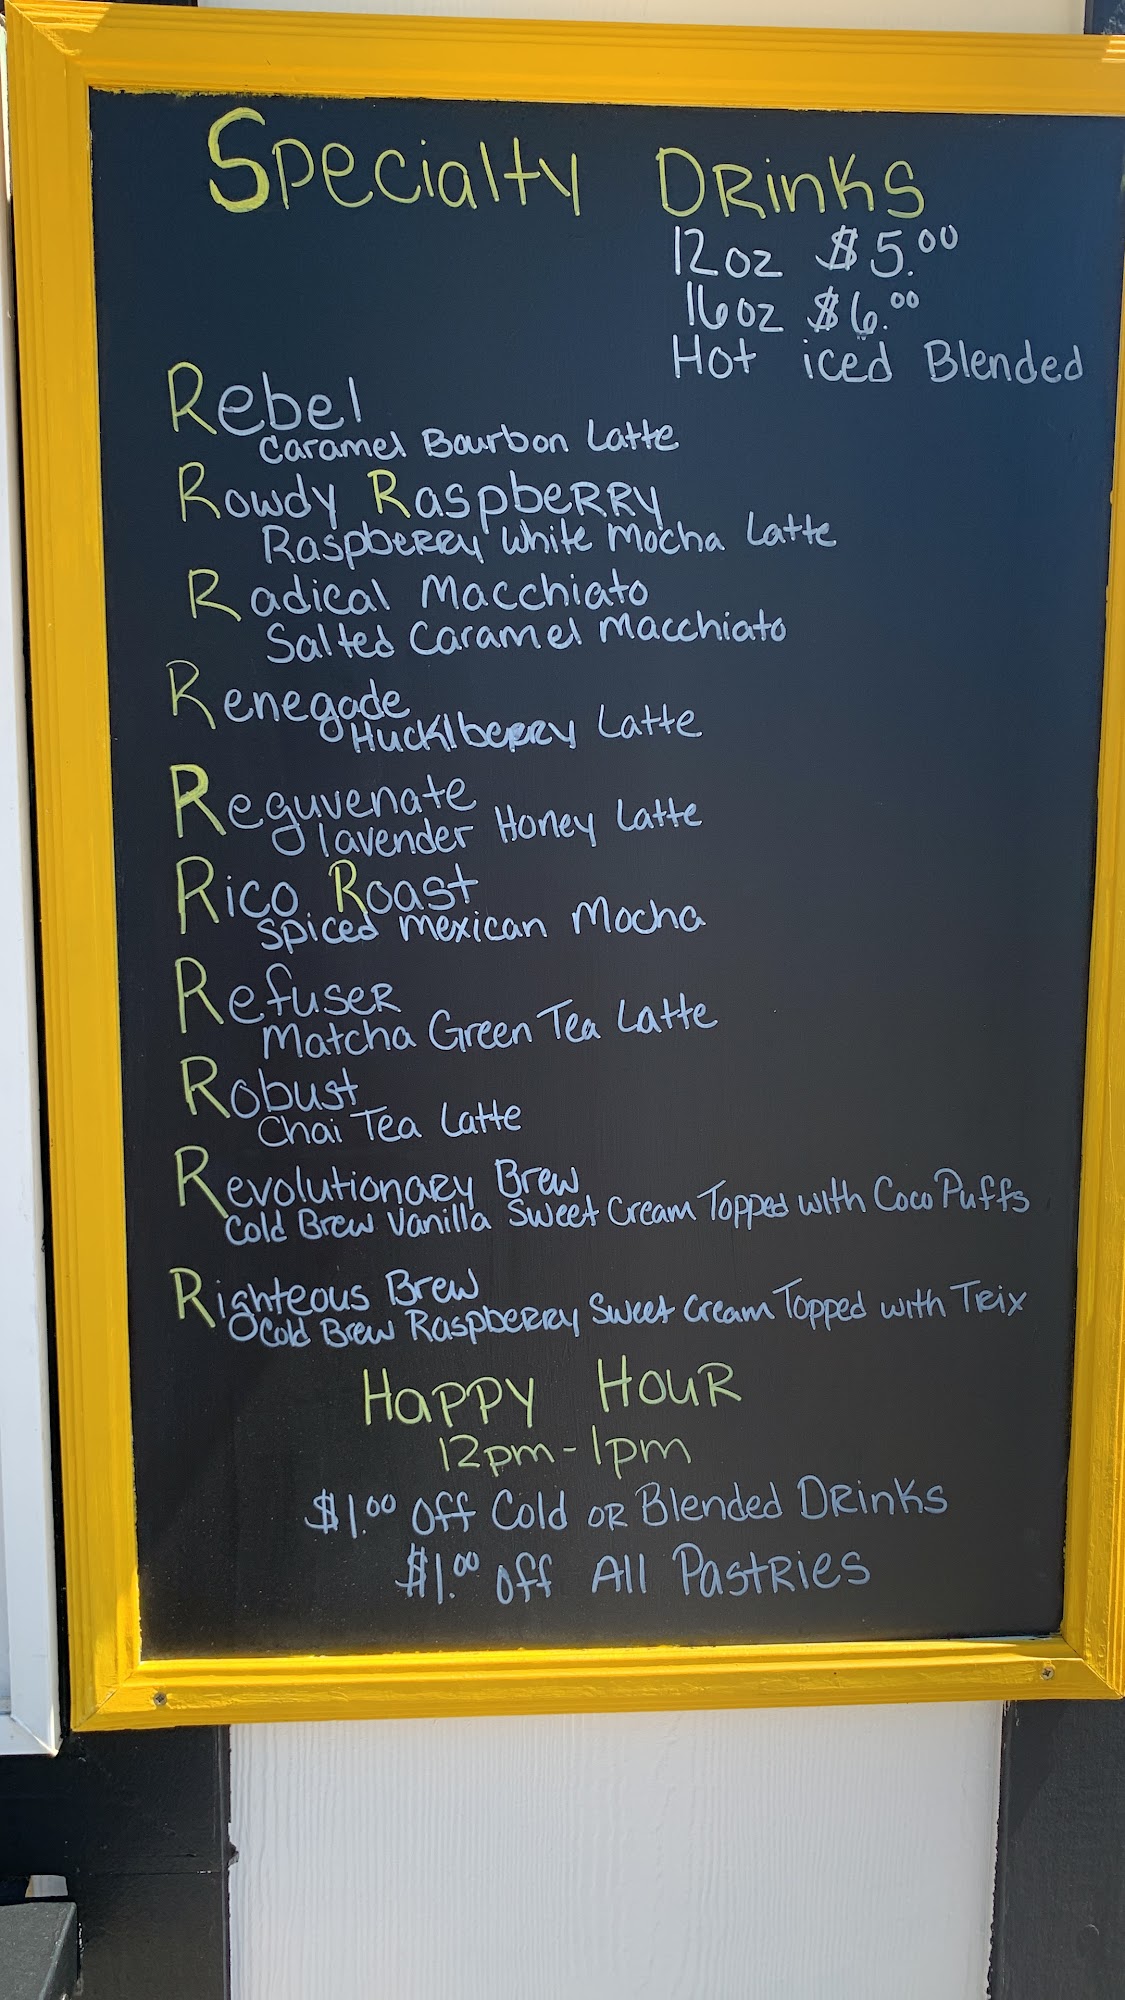 Specialty Drinks
12oz $5.00
16oz $6.00
Hot iced Blended
Rebel
Caramel Bourbon Latte
Rowdy Raspberry
Raspberry White Mocha Latte
Radical Macchiato
Salted Caramel Macchiato
Renegade
Hucklberry Latte
Reguvenate
lavender Honey Latte
Rico Roast
Spiced Mexican Mocha
Refuser
Matcha Green Tea Latte
Robust
Chai Tea Latte
Revolutionary Brew
Cold Brew Vanilla Sweet Cream Topped with Coco Puffs
Righteous Brew
Cold Brew Raspberry Sweet Cream Topped with Trix
Happy Hour
12pm-1pm
$1.00 Off Cold or Blended Drinks
$1.00 Off All Pastries